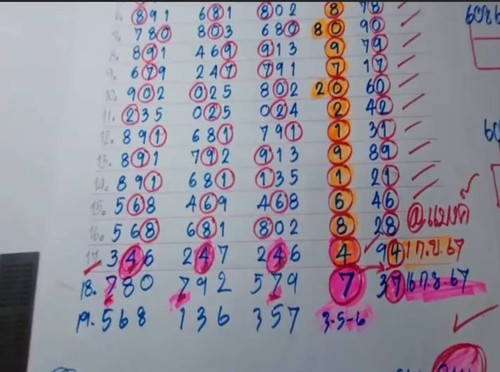 891 681 802 8 78
9. 780 803 680 80 90
8. 891 469 913 9 79
9. 679 247 791 7 17
10. 902 025 802 20 60
11. 235 025 024 2 42
12. 891 681 791 1 31
13. 891 792 913 9 89
14. 891 681 135 1 21
15. 568 469 468 6 46
16. 568 681 802 8 28
17. 346 247 246 4 94 17.ย.67
18. 780 792 579 7 39
19. 568 136 357 3-5-6